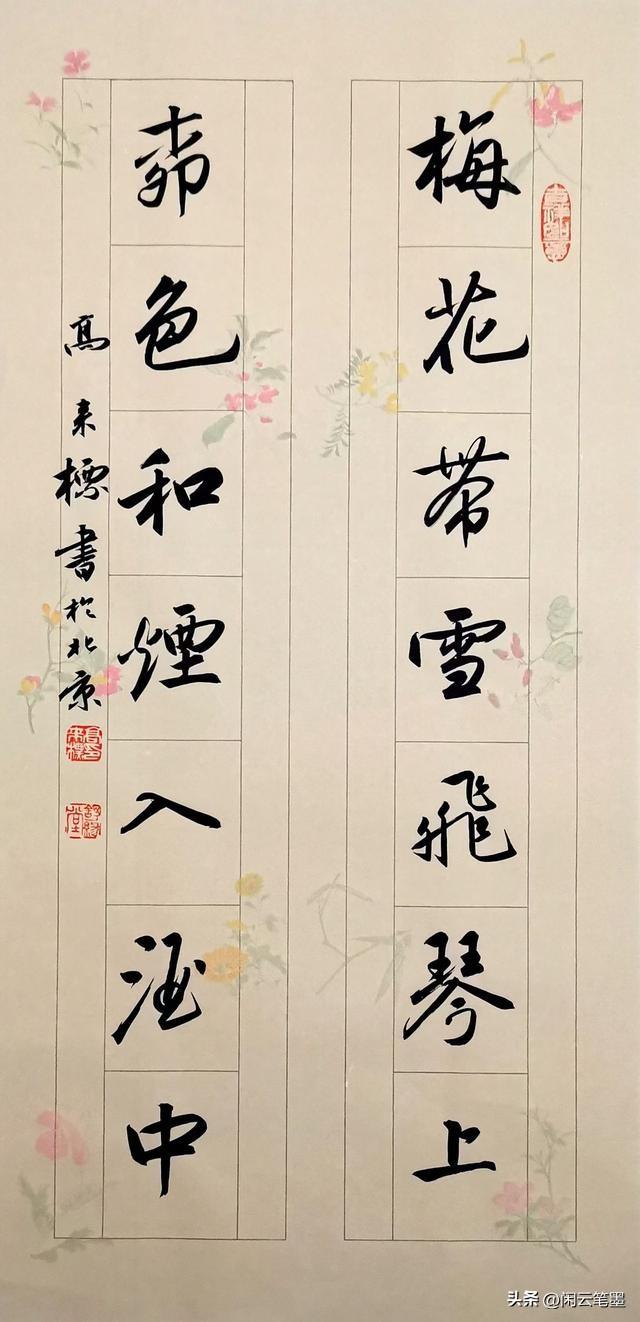 梅花带雪飛琴上
柳色和煙入酒中
髙来標書於北京
头条 @闲云笔墨